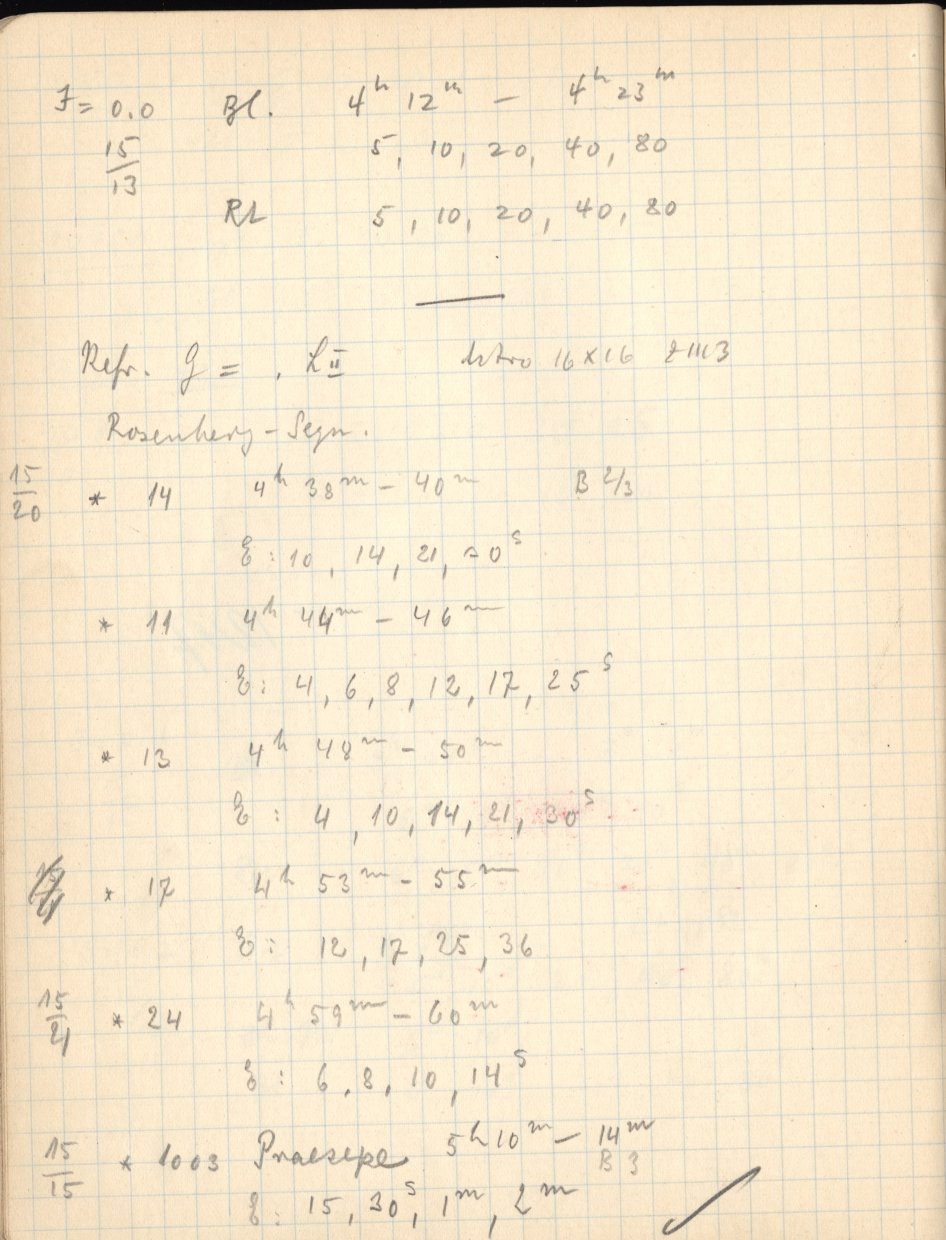 F = 0.0 Bl. 4h 12m – 4h 23m
15/13 5, 10, 20, 40, 80
RL 5, 10, 20, 40, 80
Refr. g = . L II Astro 16 x 16
Rosenberg - Segn.
15/20 * 14 4h 38m – 40m B 2/3
E: 10, 14, 21, 30s
* 11 4h 44m – 46m
E: 4, 6, 8, 12, 17, 25s
* 13 4h 48m – 50m
E: 4, 10, 14, 21, 30s
* 17 4h 53m – 55m
E: 12, 17, 25, 36
15/21 * 24 4h 59m – 60m
E: 6, 8, 10, 14s
15/15 * 1003 Praesepe 5h 10m – 14m
B 3
E: 15, 30s, 1m, 2m